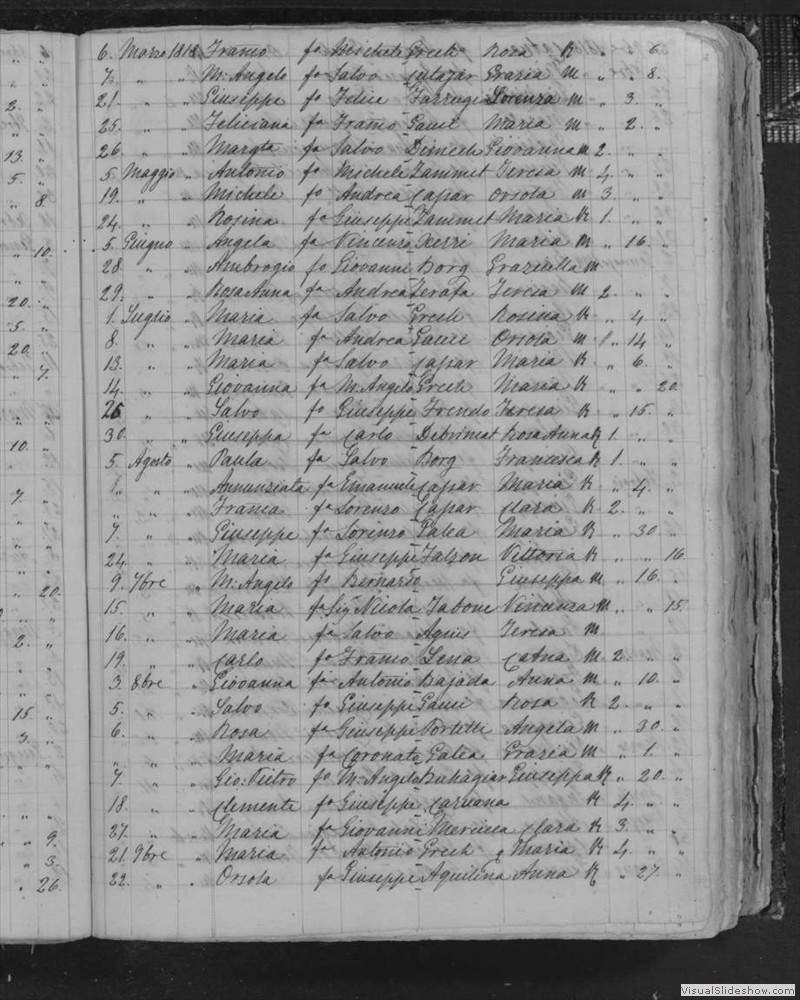 6. Marzo 1818 Franco fo Michele Grech Rosa R " " 6.
7. " " M. Angelo fo Salvo Cutajar Grazia M " " 8.
21. " " Giuseppe fo Felice Farrugi Lorenza M " 3. "
25. " " Feliciana fa Franco Gauci Maria M " 2. "
26. " " Margta fa Salvo Dimech Giovanna M 2. " "
5. Maggio " Antonio fo Michele Zammit Teresa M 4. " "
19. " " Michele fo Andrea Capar Orsola M 3. " "
24. " " Rosina fa Giuseppe Zammit Maria R 1. " "
5. Giugno " Angela fa Vincenzo Xerri Maria M " 16. "
28. " " Ambrogio fo Giovanni Borg Graziella M
29. " " Rosa Anna fa Andrea Zerafa Teresa M 2. " "
1. Luglio " Maria fa Salvo Grech Rosina R " 4. "
8. " " Maria fa Andrea Gauci Orsola M 1 " 14 "
13. " " Maria fa Salvo Capar Maria R " 6. "
14. " " Giovanna fa M. Angelo Grech Maria R " " 20.
" " Salvo fo Giuseppe Frendo Teresa R " 15. "
30. " " Giuseppa fa Carlo Rosa Anna R 1. " "
5. Agosto " Paula fa Salvo Borg Francesca R 1. " "
" " Annunziata fa Emanuele Capar Maria R " 4. "
" " " Franca fa Lorenzo Capar Clara R 2. " "
7. " " Giuseppe fo Lorenzo Galea Maria R " 30. "
24. " " Maria fa Giuseppe Falzon Vittoria R " " 16
9. 7bre " M. Angelo fo Bernardo Giuseppa M " 16. "
15. " " Maria fa Sig Nicola Tabone Vincenza M " " 15.
16. " " Maria fa Salvo Agius Teresa M
19. " " Carlo fo Franco Sena Catna M 2. " "
3. 8bre " Giovanna fa Antonio Bajada Anna M " 10. "
5. " " Salvo fo Giuseppe Gauci Rosa R 2. " "
6. " " Rosa fa Giuseppe Portelli Angela M " 30. "
" " " Maria fa Coronato Galea Grazia M " 1. "
7. " " Gio: Pietro fo M. Angelo Buhagiar Giuseppa R " 20. "
18. " " Clemente fo Giuseppe Caruana R 4. " "
27. " " Maria fa Giovanni Mercieca Clara R 3. " "
21. 9bre " Maria fa Antonio Grech Maria R 4. " "
22. " " Orsola fa Giuseppe Aquilina Anna R " 27. "
VisualSlideshow.com